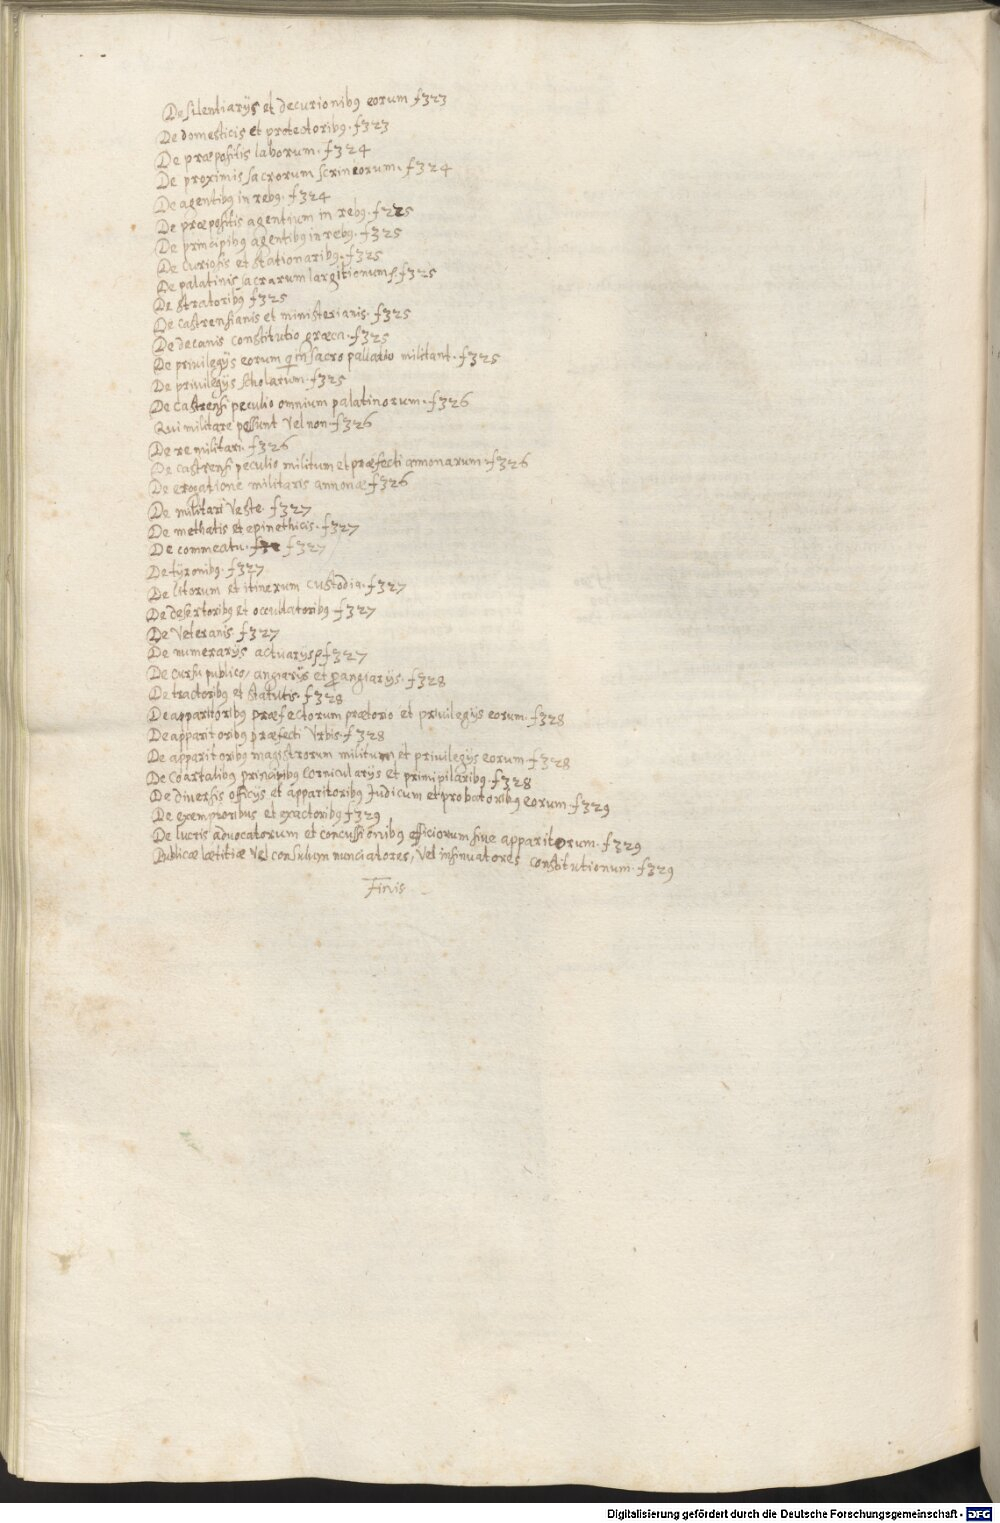 De silentiarijs et decurionibꝰ eorum f323
De domesticis et protectoribꝰ. f323
De præpositis laborum. f324
De proximis sacrorum scrineorum. f324
De agentibꝰ in rebꝰ. f324
De præpositis agentium in rebꝰ. f225
De principibꝰ agentibꝰ in rebꝰ. f325
De curiosis et stationaribꝰ. f325
De palatinis sacrarum largitionum. f325
De stratoribꝰ f325
De castrensianis et ministerianis. f325
De decanis constitutio græca. f325
De privilegijs eorum q in sacro pallatio militant. f325
De privilegijs scholarum. f325
De castrensi peculio omnium palatinorum. f326
Qui militare possunt vel non. f326
De re militari. f326
De castrensi peculio militum et præfecti annonarum. f326
De erogatione militaris annonæ f326
De militari veste. f327
De methatis et epinethicis. f327
De commeatu. f327
De tyronibꝰ. f327
De litorum et itinerum custodia. f327
De desertoribꝰ et occultatoribꝰ f327
De veteranis f327
De numerarijs actuarijs f327
De cursu publico, angarijs et perangiarijs. f328
De tractoribꝰ et statutis. f328
De apparitoribꝰ præfectorum prætorio et privilegijs eorum. f328
De apparitoribꝰ præfecti Vrbis. f328
De apparitoribꝰ magistrorum militum et privilegijs eorum. f328
De coartalibꝰ principibꝰ cornicularijs et primipilaribꝰ. f328
De diversis officijs et apparitoribꝰ Judicum et probatoribꝰ eorum. f329
De exemptoribus et exactoribꝰ f329
De lucris advocatorum et concussionibꝰ officiorum sive apparitorum. f329
Publicæ lætitiæ vel consulum nunciatores, vel insinuatores constitutionum. f329
Finis
Digitalisierung gefördert durch die Deutsche Forschungsgemeinschaft - DFG